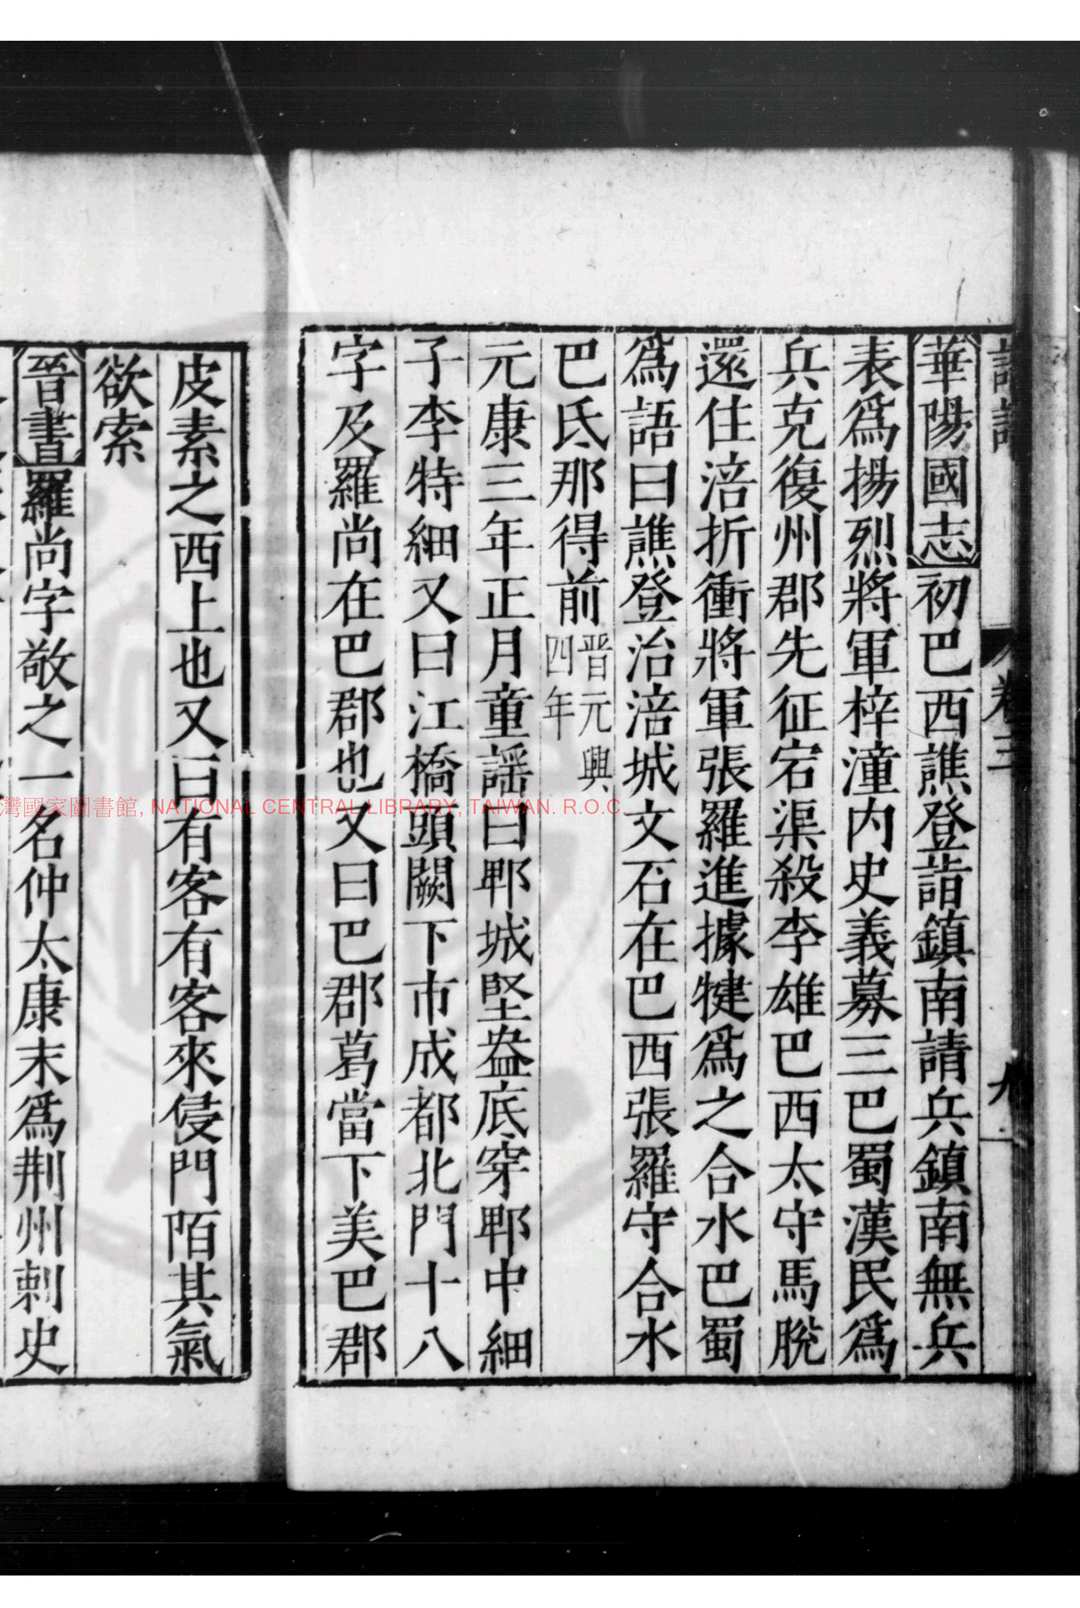 卷三
九
華陽國志初巴西譙登詣鎮南請兵鎮南無兵
表爲揚烈將軍梓潼内史義募三巴蜀漢民爲
兵克復州郡先征宕渠殺李雄巴西太守馬脫
還住涪折衝將軍張羅進據犍爲之合水巴蜀
爲語曰譙登治涪城文石在巴西張羅守合水
巴氐那得前晋元興四年
元康三年正月童謡曰郫城堅盎底穿郫中細
子李特細又曰江橋頭闕下市成都北門十八
字及羅尚在巴郡也又曰巴郡葛當下美巴郡
皮素之西上也又曰有客有客來侵門陌其氣
欲索
晉書羅尚字敬之一名仲太康末爲荆州刺史
灣國家圖書館, NATIONAL CENTRAL LIBRARY, TAIWAN. R.O.C.